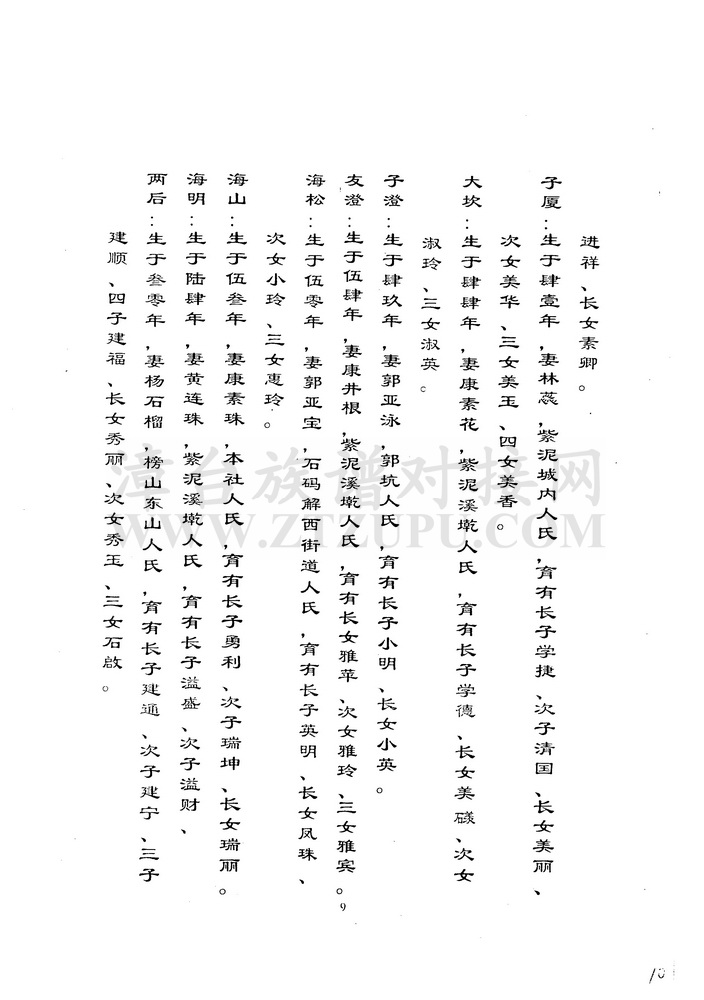 进祥、长女素卿。
子厦：生于肆壹年，妻林蕊，紫泥城内人氏，育有长子学捷、次子清国、长女美丽、
次女美华、三女美玉、四女美香。
大坎：生于肆肆年，妻康素花，紫泥溪墘人氏，育有长子学德、长女美礞、次女
淑玲、三女淑英。
子澄：生于肆玖年，妻郭亚泳，郭坑人氏，育有长子小明、长女小英。
友澄：生于伍肆年，妻康井根，紫泥溪墘人氏，育有长女雅苹、次女雅玲、三女雅宾。
海松：生于伍零年，妻郭亚宝，石码解西街道人氏，育有长子英明、长女凤珠、
次女小玲、三女惠玲。
海山：生于伍叁年，妻康素珠，本社人氏，育有长子勇利、次子瑞坤、长女瑞丽。
海明：生于陆肆年，妻黄连珠，紫泥溪墘人氏，育有长子溢盛、次子溢财、
两后：生于叁零年，妻杨石榴，榜山东山人氏，育有长子建通、次子建宁、三子
建顺、四子建福、长女秀丽、次女秀玉、三女石啟。
漳台族谱对接网
WWW.ZTZUPU.COM
9
10